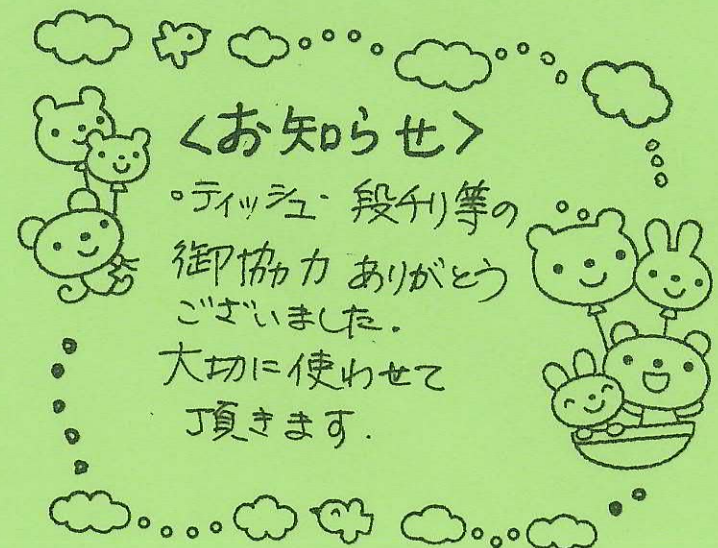 <お知らせ>
・ティッシュ・段チリ等の
御協力ありがとう
ございました.
大切に使わせて
頂きます.